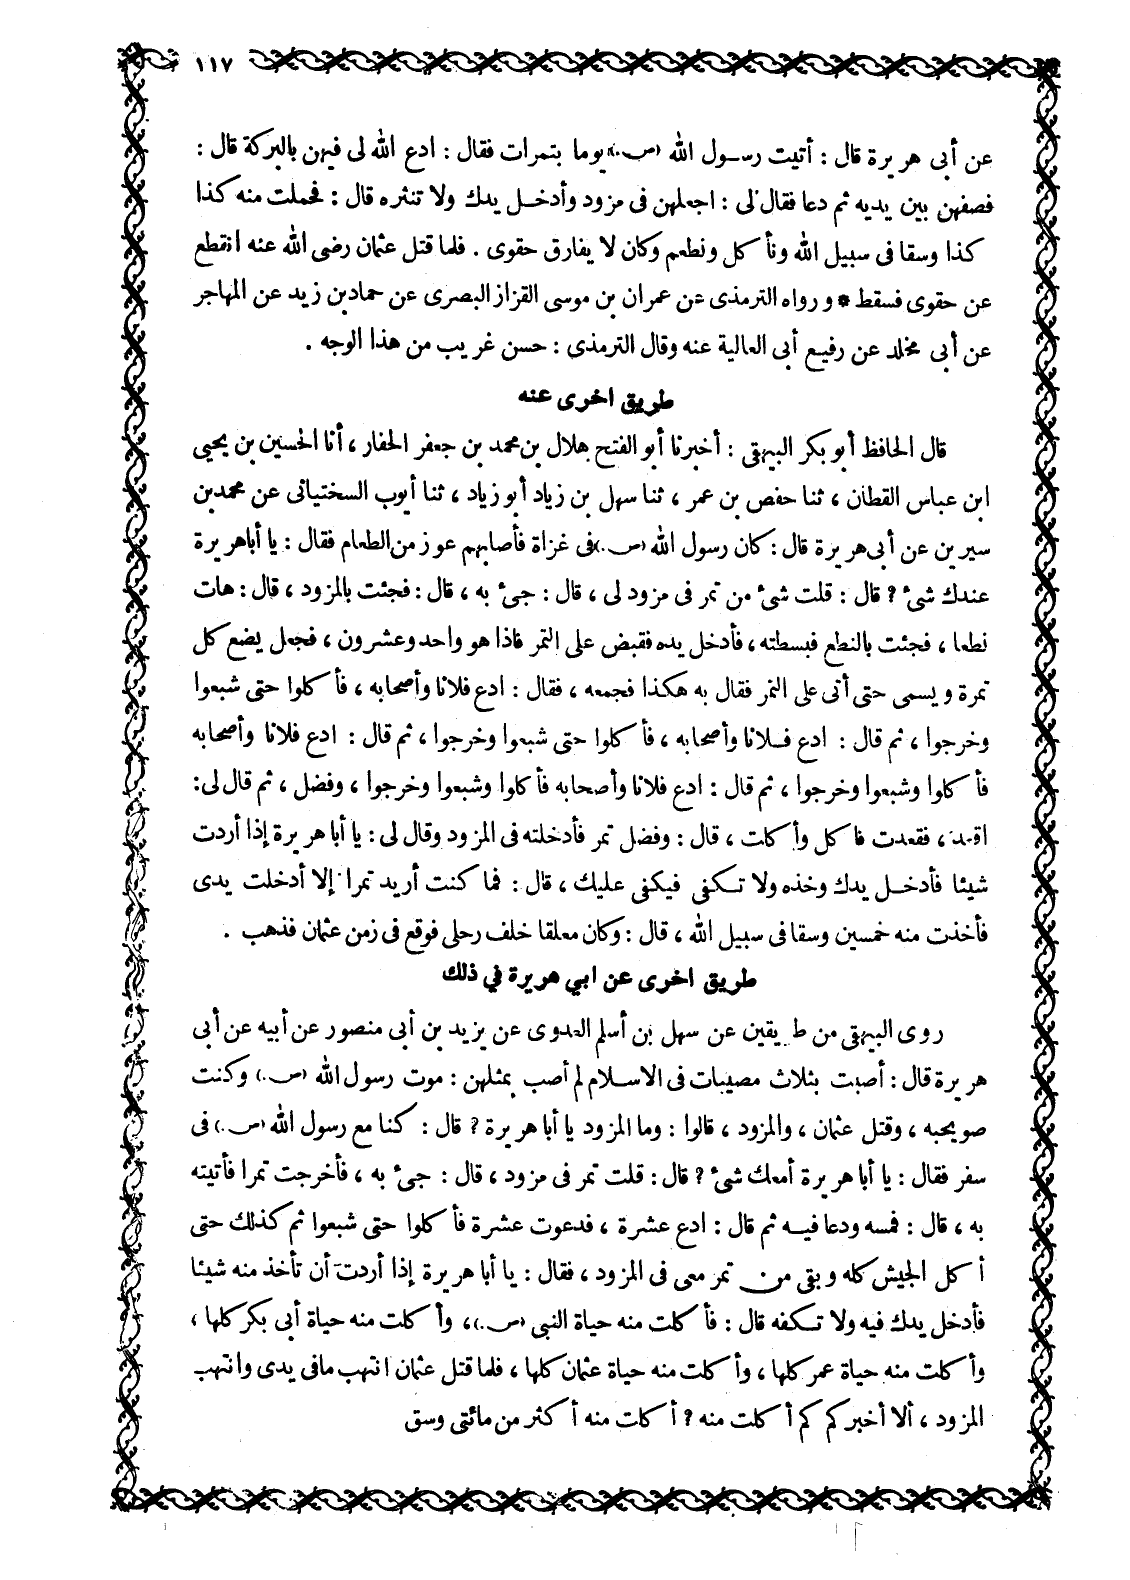 ١١٧
عن أبى هريرة قال : أتيت رسول الله (ص.) يوما بتمرات فقال : ادع الله لى فيهن بالبركة قال :
فصفهن بين يديه ثم دعا فقال لى : اجعلهن فى مزود وأدخل يدك ولا تنثره قال : فحملت منه كذا
كذا وسقا فى سبيل الله ونأكل ونطعم وكان لا يفارق حقوى . فلما قتل عثمان رضى الله عنه انقطع
عن حقوى فسقط * ورواه الترمذى عن عمران بن موسى القزاز البصرى عن حماد بن زيد عن المهاجر
عن أبى مخلد عن رفيع أبى العالية عنه وقال الترمذى : حسن غريب من هذا الوجه .
طريق اخرى عنه
قال الحافظ أبو بكر البيهقى : أخبرنا أبو الفتح هلال بن محمد بن جعفر الحفار ، أنا الحسين بن يحيى
ابن عباس القطان ، ثنا حفص بن عمر ، ثنا سهل بن زياد أبو زياد ، ثنا أيوب السختيانى عن محمد بن
سيرين عن أبى هريرة قال : كان رسول الله (ص.) فى غزاة فأصابهم عوز من الطعام فقال : يا أبا هريرة
عندك شىء ? قال : قلت شىء من تمر فى مزود لى ، قال : جىء به ، قال : فجئت بالمزود ، قال : هات
نطعا ، فجئت بالنطع فبسطته ، فأدخل يده فقبض على التمر فاذا هو واحد وعشرون ، فجعل يضع كل
تمرة ويسمى حتى أتى على التمر فقال به هكذا فجمعه ، فقال : ادع فلانا وأصحابه ، فأكلوا حتى شبعوا
وخرجوا ، ثم قال : ادع فلانا وأصحابه ، فأكلوا حتى شبعوا وخرجوا ، ثم قال : ادع فلانا وأصحابه
فأكلوا وشبعوا وخرجوا ، ثم قال : ادع فلانا وأصحابه فأكلوا وشبعوا وخرجوا ، وفضل ، ثم قال لى :
اقعد ، فقعدت فأكل وأكلت ، قال : وفضل تمر فأدخلته فى المزود وقال لى : يا أبا هريرة إذا أردت
شيئا فأدخل يدك وخذه ولا تكفى فيكفى عليك ، قال : فما كنت أريد تمرا إلا أدخلت يدى
فأخذت منه خمسين وسقا فى سبيل الله ، قال : وكان معلقا خلف رحلى فوقع فى زمن عثمان فذهب .
طريق اخرى عن ابي هريرة في ذلك
روى البيهقى من طريقين عن سهل بن أسلم العدوى عن يزيد بن أبى منصور عن أبيه عن أبى
هريرة قال : أصبت بثلاث مصيبات فى الاسلام لم أصب بمثلهن : موت رسول الله (ص.) وكنت
صويحبه ، وقتل عثمان ، والمزود ، قالوا : وما المزود يا أبا هريرة ? قال : كنا مع رسول الله (ص.) فى
سفر فقال : يا أبا هريرة أمعك شىء ? قال : قلت تمر فى مزود ، قال : جىء به ، فأخرجت تمرا فأتيته
به ، قال : فمسه ودعا فيه ثم قال : ادع عشرة ، فدعوت عشرة فأكلوا حتى شبعوا ثم كذلك حتى
أكل الجيش كله وبقى من تمر معى فى المزود ، فقال : يا أبا هريرة إذا أردت أن تأخذ منه شيئا
فأدخل يدك فيه ولا تكفه قال : فأكلت منه حياة النبى (ص.) ، وأكلت منه حياة أبى بكر كلها ،
وأكلت منه حياة عمر كلها ، وأكلت منه حياة عثمان كلها ، فلما قتل عثمان انتهب مافى يدى وانتهب
المزود ، ألا أخبركم كم أكلت منه ? أكلت منه أكثر من مائتى وسق